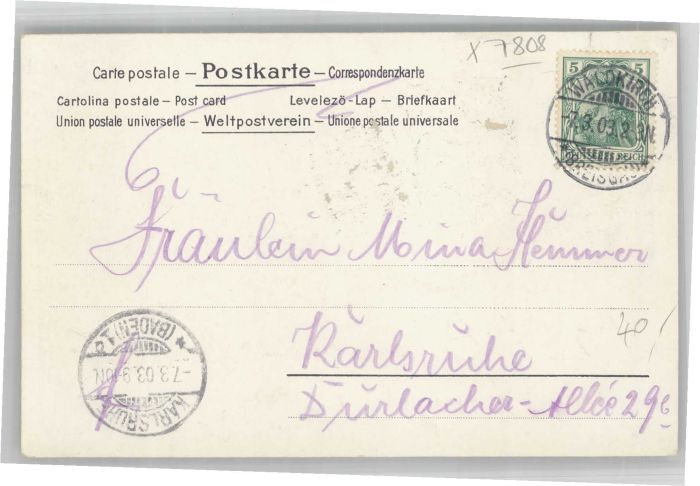 X 7808
Carte postale – Postkarte – Correspondenzkarte
Cartolina postale – Post card Levelezö-Lap – Briefkaart
Union postale universelle – Weltpostverein – Unione postale universale
5 5
REICH
WALDKIRCH
7.3.03.2-3N.
* BREISGAU *
Fräulein Mina Hemmer
Karlsruhe
Durlacher-Allée 29c
40/
KARLSRUHE
-7.3.03.9-10N.
* (BADEN) 1